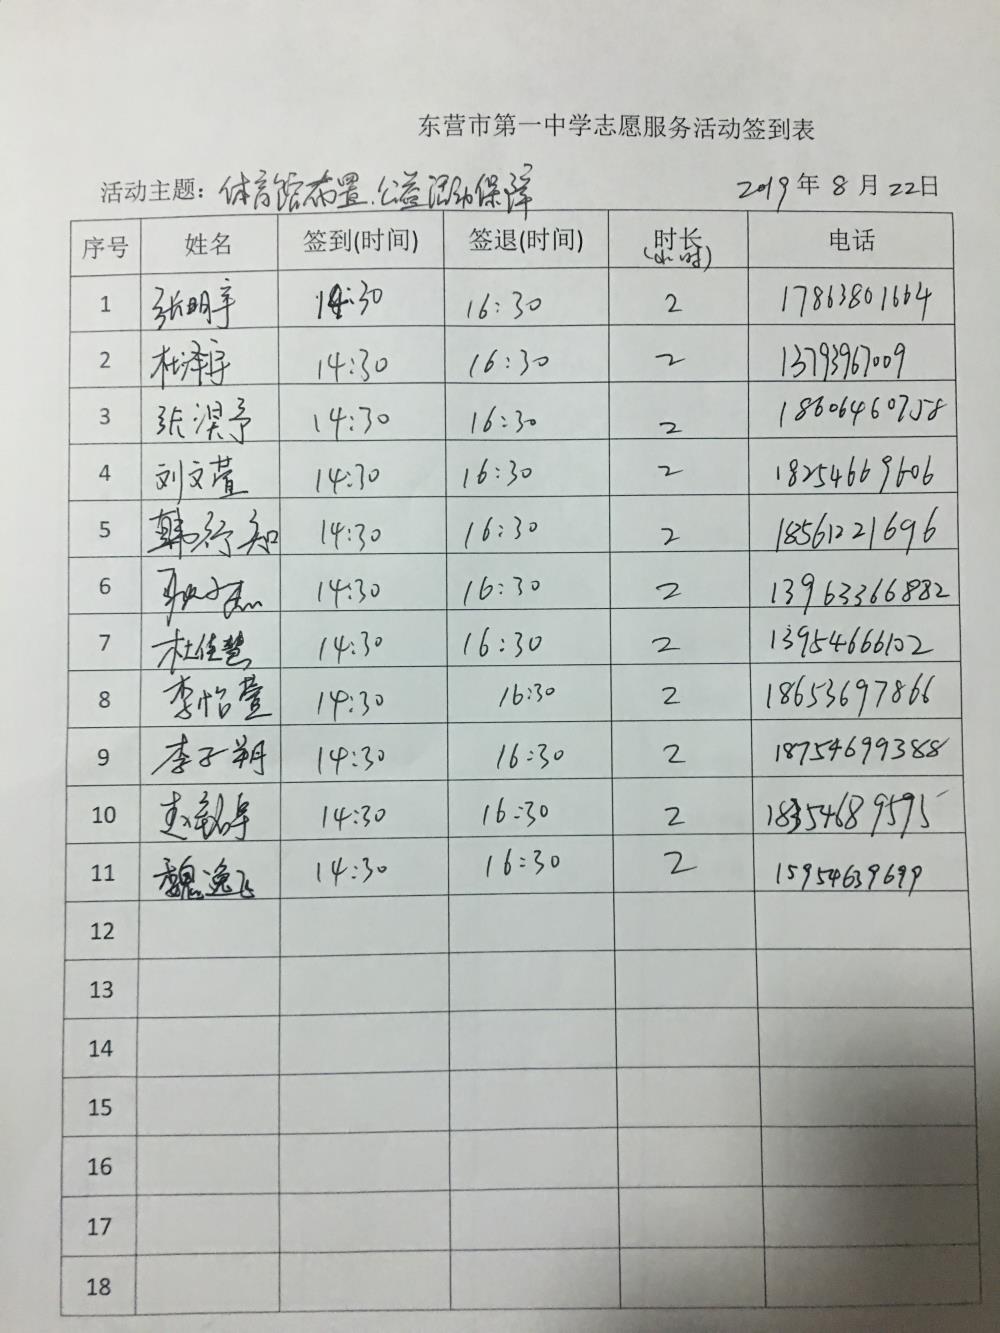 东营市第一中学志愿服务活动签到表
活动主题：体育馆布置.公益活动保障 2019年8月22日
序号 姓名 签到(时间) 签退(时间) 时长(小时) 电话
1 张明宇 14:30 16:30 2 17863801664
2 杜泽宇 14:30 16:30 2 13793967009
3 张淏予 14:30 16:30 2 18606460758
4 刘文萱 14:30 16:30 2 18254669606
5 韩行知 14:30 16:30 2 18561221696
6 14:30 16:30 2 13963366882
7 杜佳慧 14:30 16:30 2 13954666102
8 李怡萱 14:30 16:30 2 18653697866
9 李子朔 14:30 16:30 2 18754699388
10 14:30 16:30 2 18354689595
11 魏逸飞 14:30 16:30 2 15954639699
12
13
14
15
16
17
18